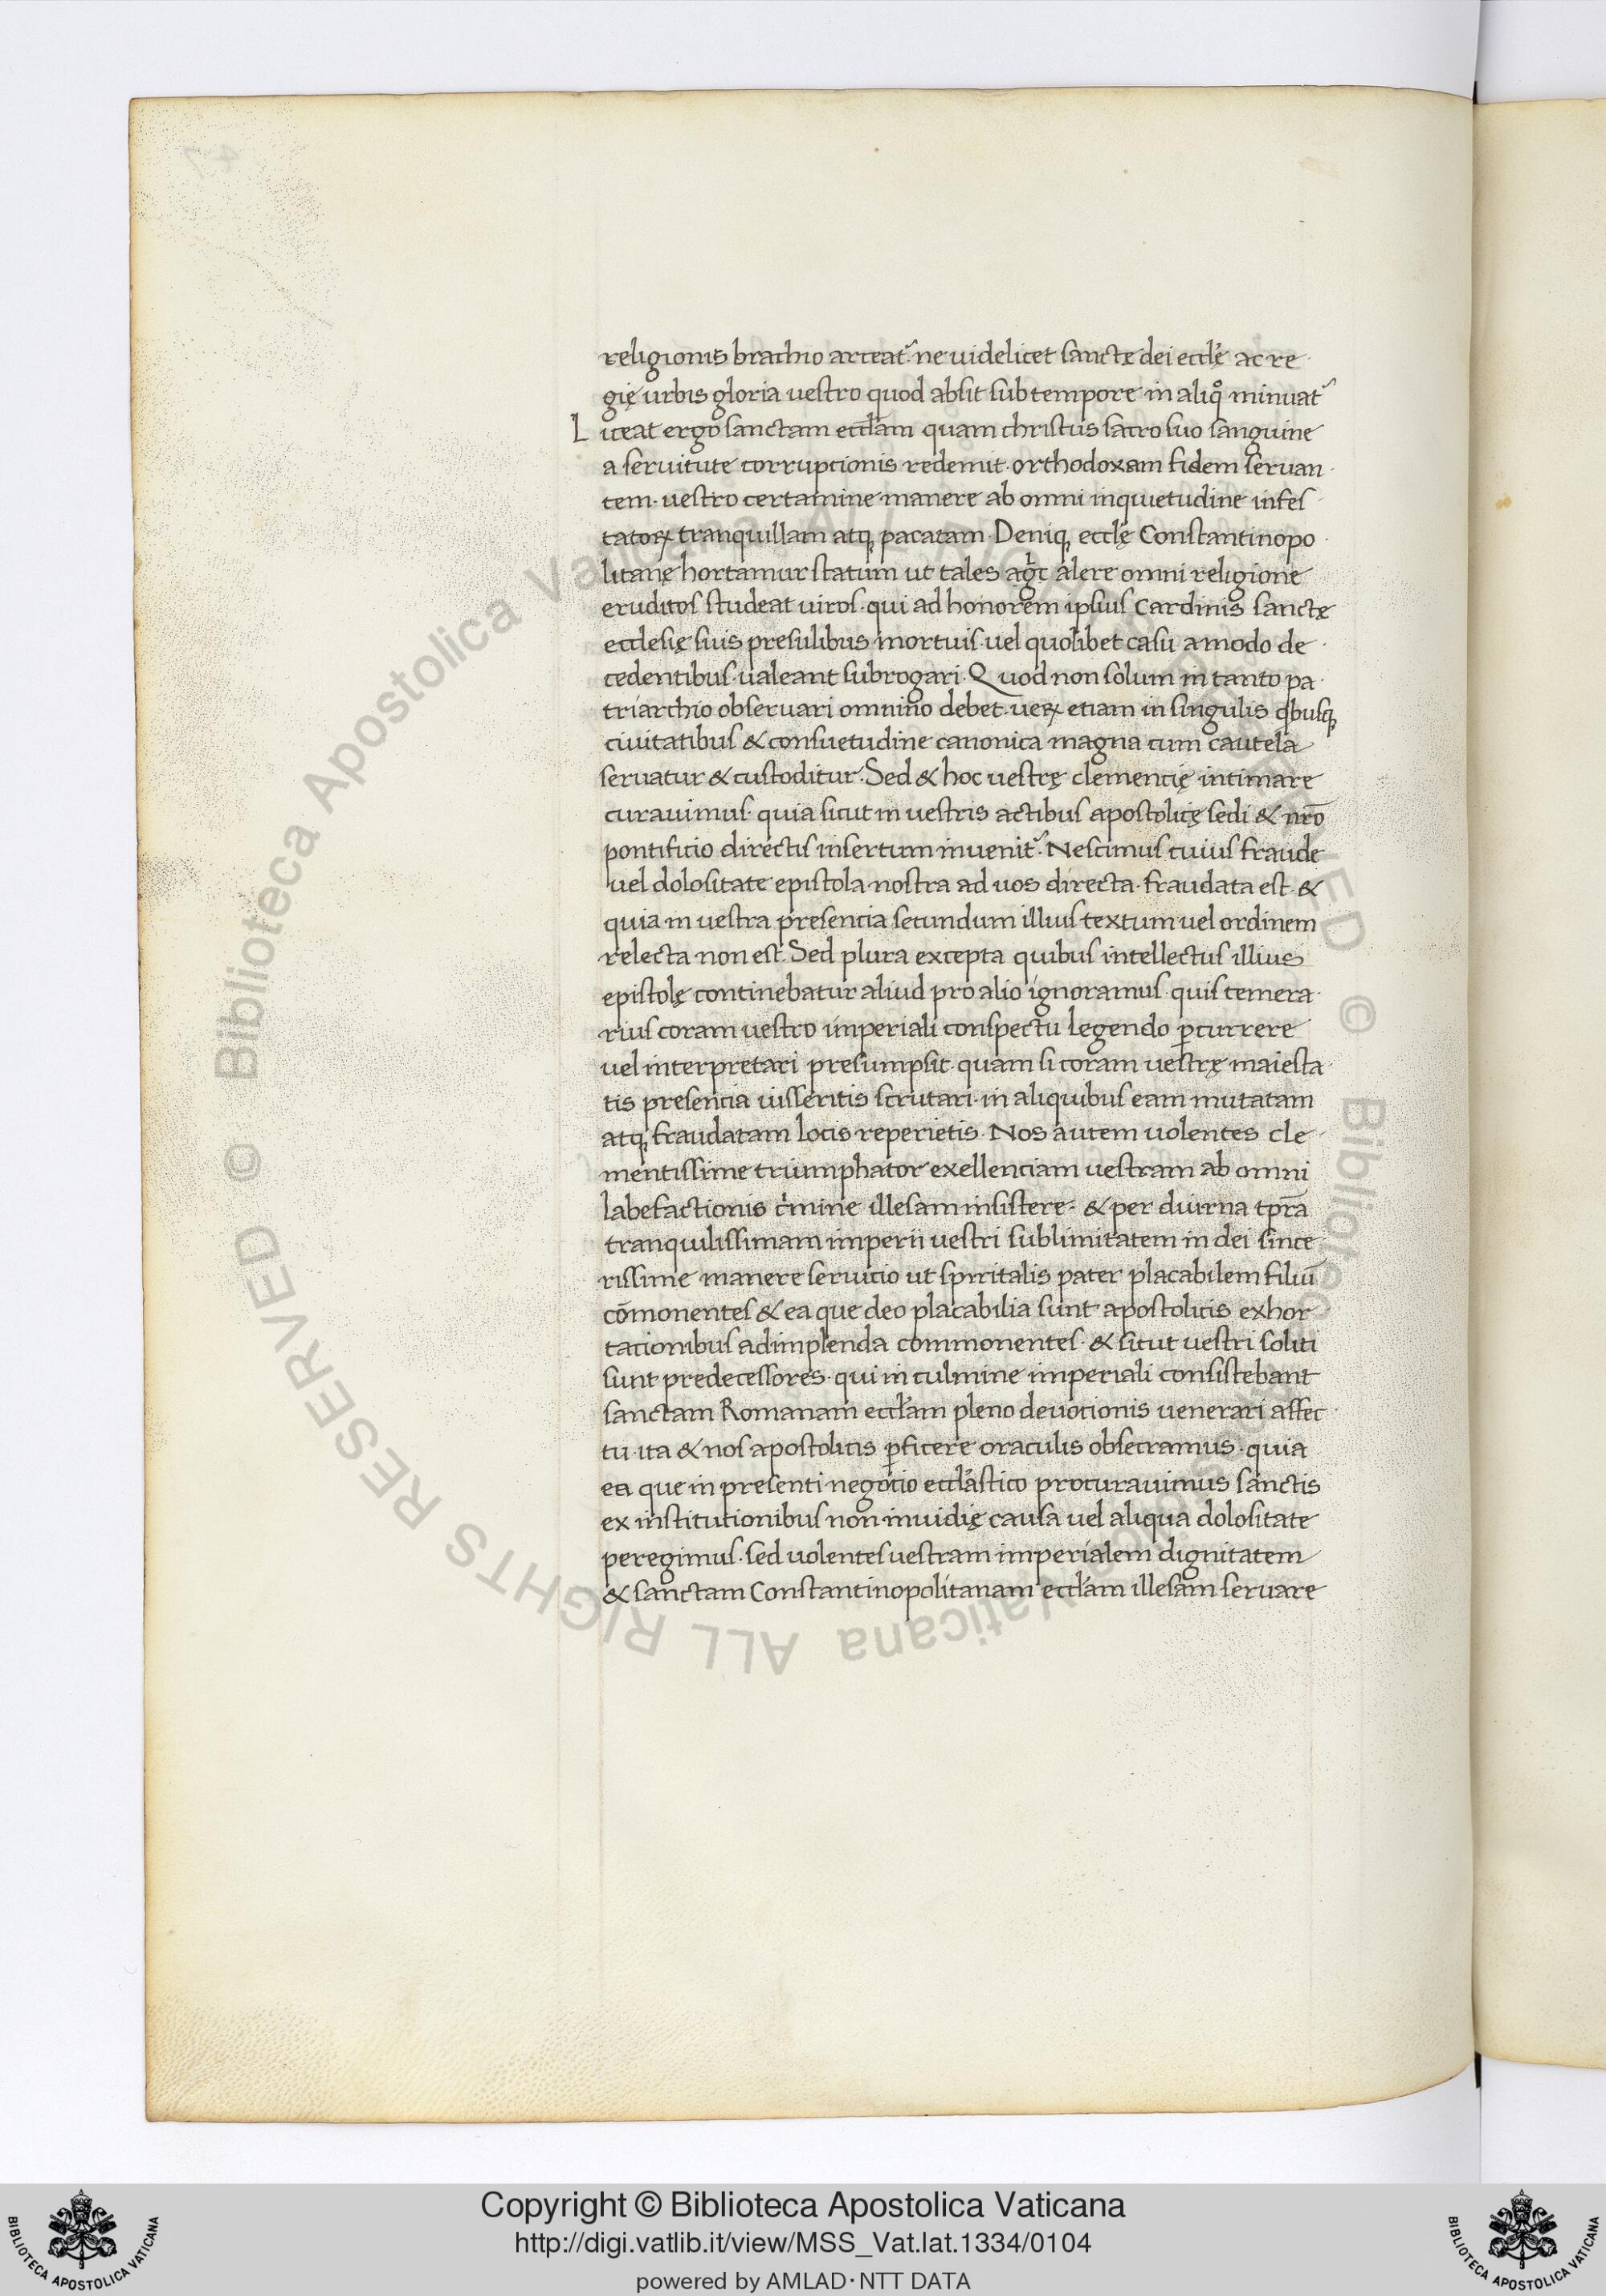 religionis brachio arceat᷑ ne uidelicet sanctę dei eccl̓ę ac re
gię urbis gloria uestro quod absit sub tempore in aliqͦ minuat᷑
Liceat ergo sanctam eccl̓am quam christus sacro suo sanguine
a seruitute corrupcionis redemit· orthodoxam fidem seruan
tem· uestro certamine manere ab omni inquietudine infes
tatoꝝ tranquillam atq̨ pacatam· Deniq̨ eccl̓ę Constantinopo
litanę hortamur statum ut tales alere omni religione
eruditos studeat uiros· qui ad honorem ipsius Cardinis sanctę
ecclesię suis presulibus mortuis uel quolibet casu amodo de
cedentibus· ualeant subrogari· Quod non solum in tanto pa
triarchio obseruari omnino debet· ueꝝ etiam in singulis qͥbusq̨
ciuitatibus & consuetudine canonica magna cum cautela
seruatur & custoditur· Sed & hoc uestrę clemencię intimare
curauimus· quia sicut in uestris actibus apostolicę sedi & nr̄o
pontificio directis insertum inuenit᷑· Nescimus cuius fraude
uel dolositate epistola nostra ad uos directa· fraudata est· &
quia in uestra presencia secundum illius textum uel ordinem
relecta non est· Sed plura excepta quibus intellectus illius
epistolę continebatur aliud pro alio ignoramus quis temera
rius coram uestro imperiali conspectu legendo ꝑcurrere
uel interpretari presumpsit· quam si coram uestrę maiesta
tis presencia iusseritis scrutari· in aliquibus eam mutatam
atq̨ fraudatam locis reperietis· Nos autem uolentes cle
mentissime triumphator exellenciam uestram ab omni
labefactionis cͥmine illesam insistere· & per diurna tp̄ra
tranquilissimam imperii uestri sublimitatem in dei since
rissime manere seruicio ut spiritalis pater placabilem filiū
cōmonentes & ea que deo placabilia sunt apostolicis exhor
tacionibus adimplenda commonentes· & sicut uestri soliti
sunt predecessores· qui in culmine imperiali consistebant
sanctam Romanam eccl̓am pleno deuocionis uenerari affec
tu· ita & nos apostolicis ꝑficere oraculis obsecramus· quia
ea que in presenti negocio eccl̓astico procurauimus sanctis
ex institutionibus non inuidię causa uel aliqua dolositate
peregimus· sed uolentes uestram imperialem dignitatem
& sanctam Constantinopolitanam eccl̓am illesam seruare
© Biblioteca Apostolica Vaticana ALL RIGHTS RESERVED © Biblioteca Apostolica Vaticana ALL RIGHTS RESERVED
Copyright © Biblioteca Apostolica Vaticana
http://digi.vatlib.it/view/MSS_Vat.lat.1334/0104
powered by AMLAD·NTT DATA
BIBLIOTECA APOSTOLICA VATICANA
BIBLIOTECA APOSTOLICA VATICANA